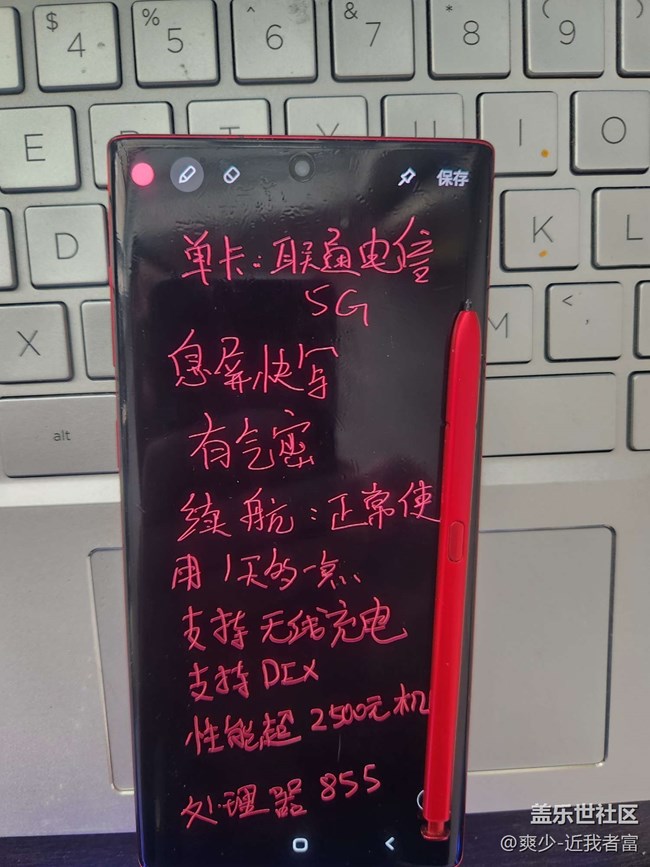 $ 4
% 5
^ 6
& 7
* 8
( 9
E
R
T
Y
U
I
O
保存
D
K
L
单卡:联通电信
5G
X
M
< ,
息屏快写
alt
有气密
续航:正常使
用1天多一点
支持无线充电
支持DEX
性能超2500元机
处理器855
盖乐世社区
@爽少-近我者富